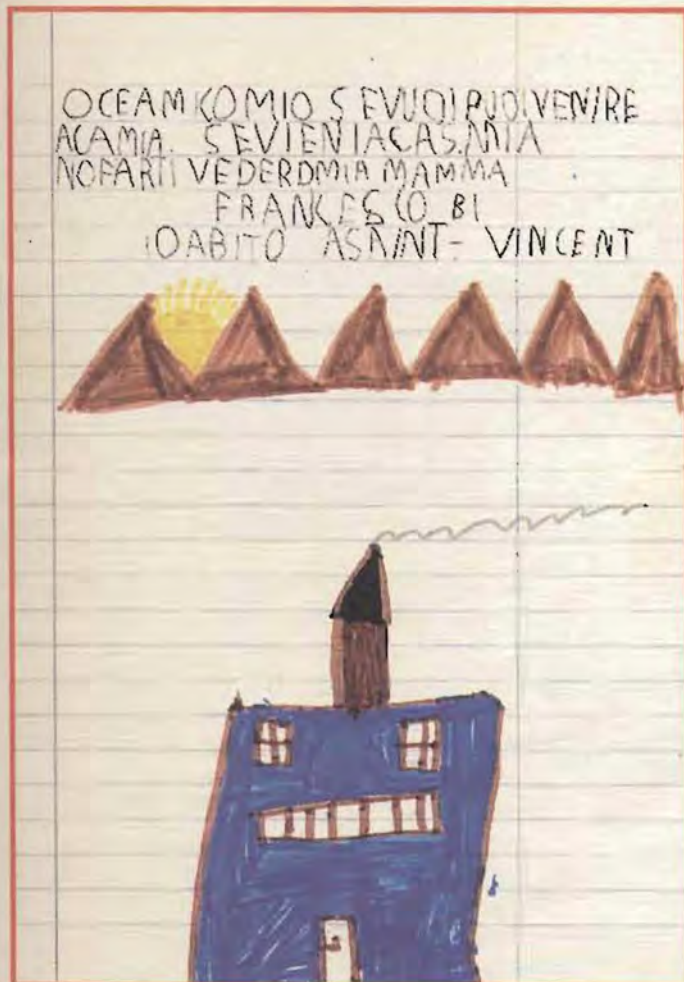 OCEAMICOMIO SEVUOIPUOIVENIRE
ACAMIA. SEVIENIACASAMIA
NOFARTI VEDERDMIA MAMMA
FRANCESCO BI
IOABITO ASAINT-VINCENT